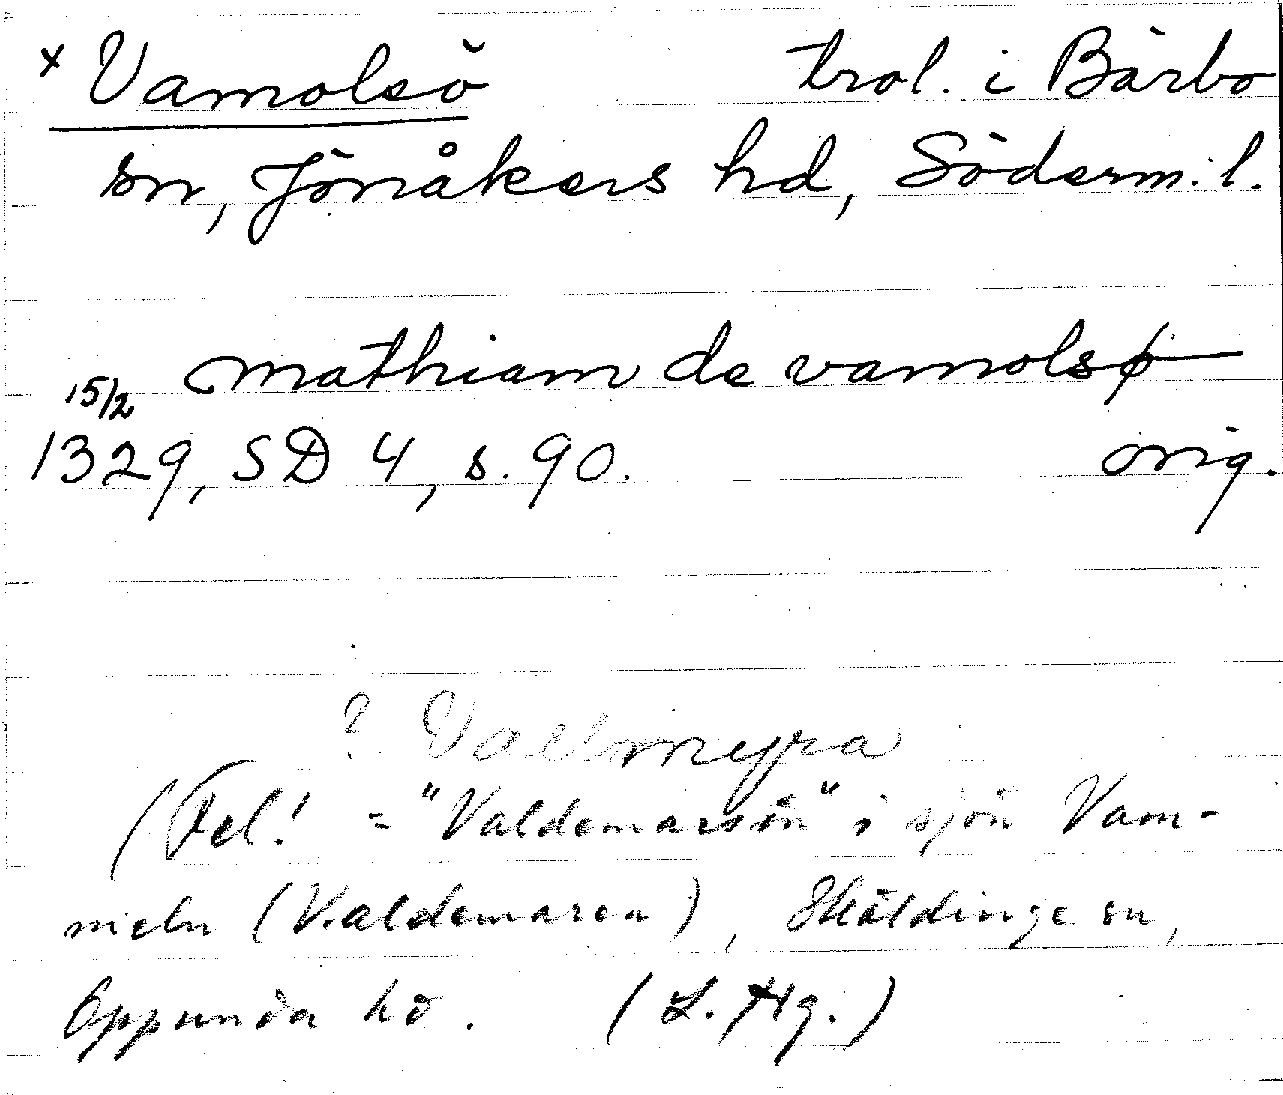 x Vamolsö trol. i Bärbo
sn, Jönåkers hd, Söderm. l.
mathiam de vamolsø
15/2
1329, SD 4, s. 90. orig.
? Vallmyra
(Fel! = "Valdemarsön" i sjön Vam-
meln (Valdemaren), Sköldinge sn,
Oppunda hd. (L. Hg.)